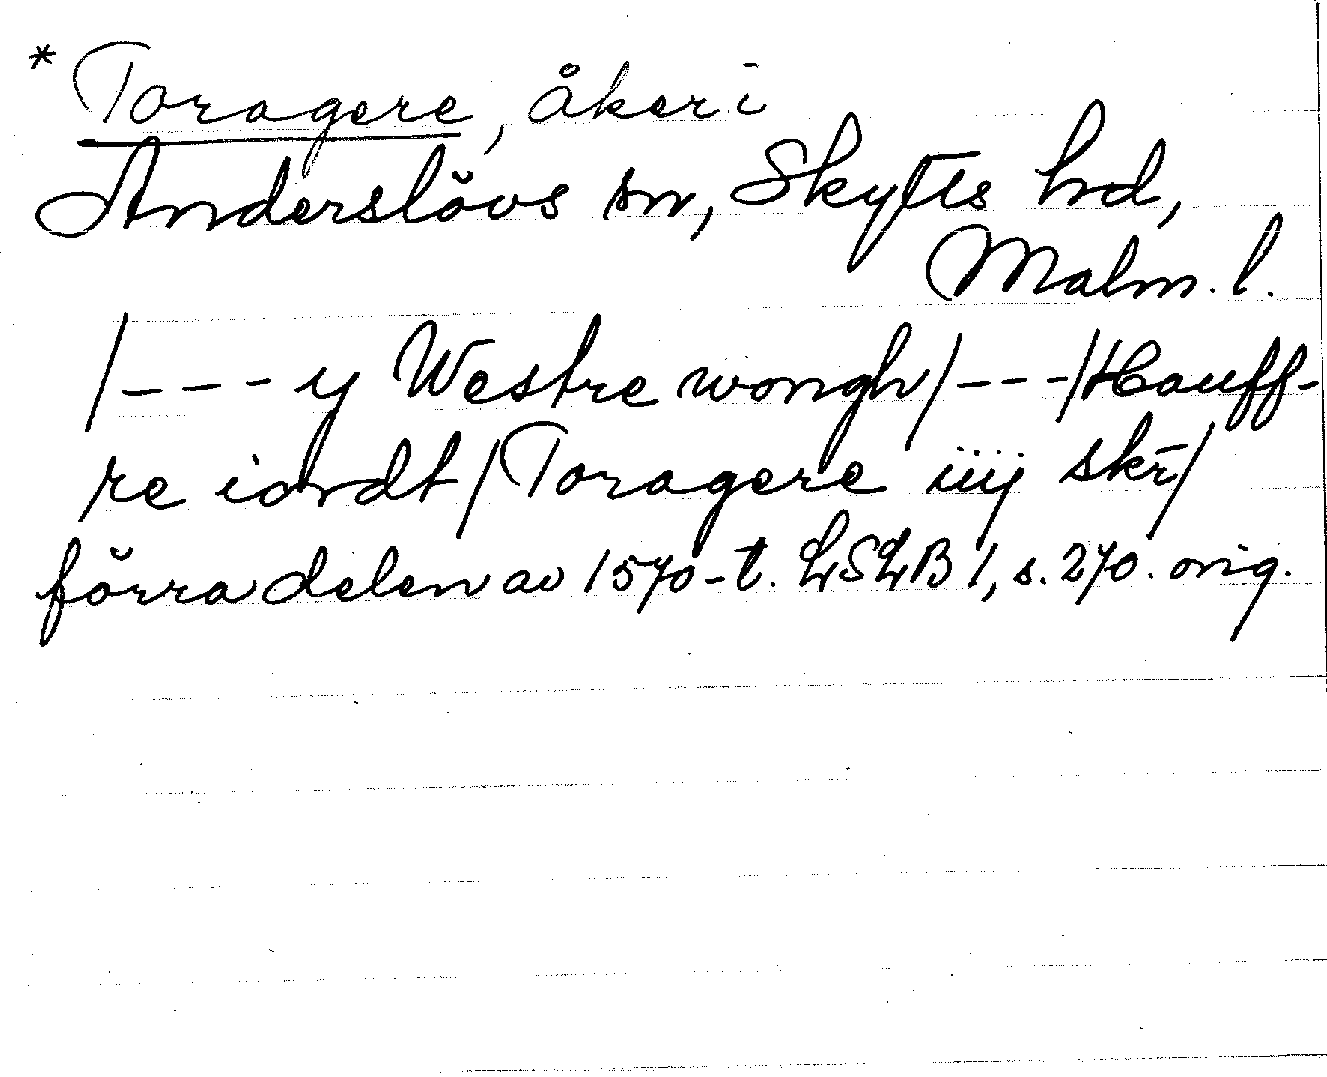 * Toragere, åker i
Anderslövs sn, Skytts hd,
Malm. l.
/--- y Westre wongh/---/Hauff-
re iordt/Toragere iiij skr̄/
förra delen av 1570-t. LSLB 1, s. 270. orig.